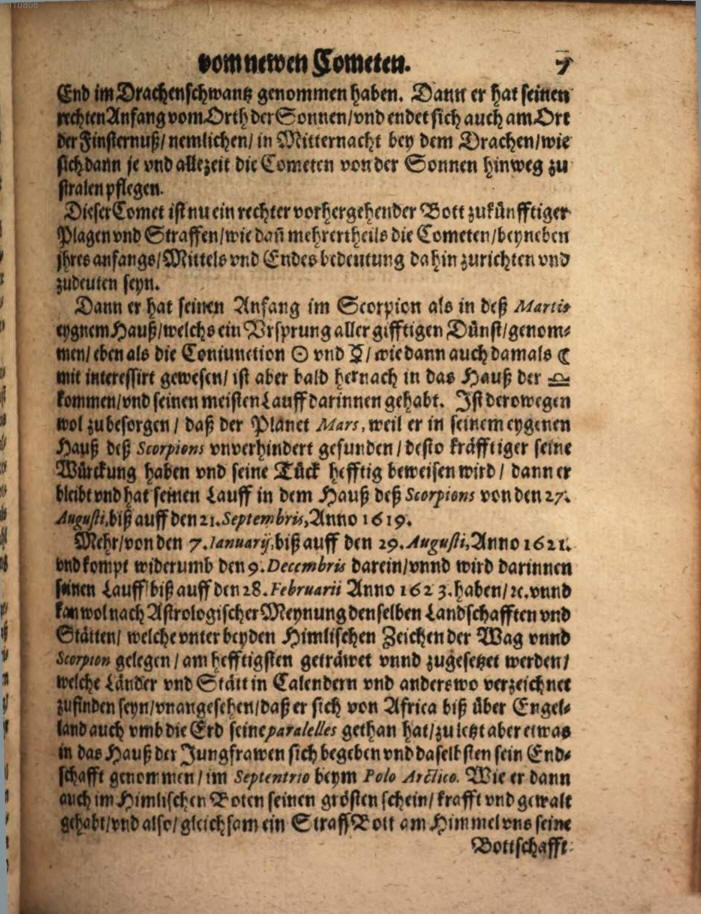 vom newen Cometen. 7
End im Drachenschwantz genommen haben. Dann er hat seinen
rechten Anfang vom Orth der Sonnen/vnd endet sich auch am Ort
der Finsternuß/nemlichen/in Mitternacht bey dem Drachen/wie
sich dann je vnd allezeit die Cometen von der Sonnen hinweg zu
stralen pflegen.
Dieser Comet ist nu ein rechter vorhergehender Bott zukünfftiger
Plagen vnd Straffen/wie dañ mehrertheils die Cometen/beyneben
jhres anfangs/Mittels vnd Endes bedeutung dahin zurichten vnd
zudeuten seyn.
Dann er hat seinen Anfang im Scorpion als in deß Martis
eygnem Hauß/welchs ein Vrsprung aller gifftigen Dünst/genom-
men/eben als die Coniunction ☉ vnd ☿/wie dann auch damals ☾
mit interessirt gewesen/ist aber bald hernach in das Hauß der ♎
kommen/vnd seinen meisten Lauff darinnen gehabt. Ist derowegen
wol zubesorgen/daß der Planet Mars, weil er in seinem eygenen
Hauß deß Scorpions vnverhindert gefunden/desto kräfftiger seine
Würckung haben vnd seine Tück hefftig beweisen wird/dann er
bleibt vnd hat seinen Lauff in dem Hauß deß Scorpions von den 27.
Augusti, biß auff den 21. Septembris, Anno 1619.
Mehr/von den 7. Ianuarij, biß auff den 29. Augusti, Anno 1621.
vnd kompt widerumb den 9. Decembris darein/vnnd wird darinnen
seinen Lauff/biß auff den 28. Februarii Anno 1623. haben/ꝛc. vnnd
kan wol nach Astrologischer Meynung denselben Landschafften vnd
Stätten/welche vnter beyden Himlischen Zeichen der Wag vnnd
Scorpion gelegen/am hefftigsten geträwet vnnd zugesetzet werden/
welche Länder vnd Stätt in Calendern vnd anderswo verzeichnet
zufinden seyn/vnangesehen/daß er sich von Africa biß über Engel-
land auch vmb die Erd seine paralelles gethan hat/zuletzt aber etwas
in das Hauß der Jungfrawen sich begeben vnd daselbsten sein End-
schafft genommen/im Septentrio beym Polo Arctico. Wie er dann
auch im Himlischen Boten seinen grösten schein/krafft vnd gewalt
gehabt/vnd also/gleichsam ein Straff Bott am Himmel vns seine
Bottschafft